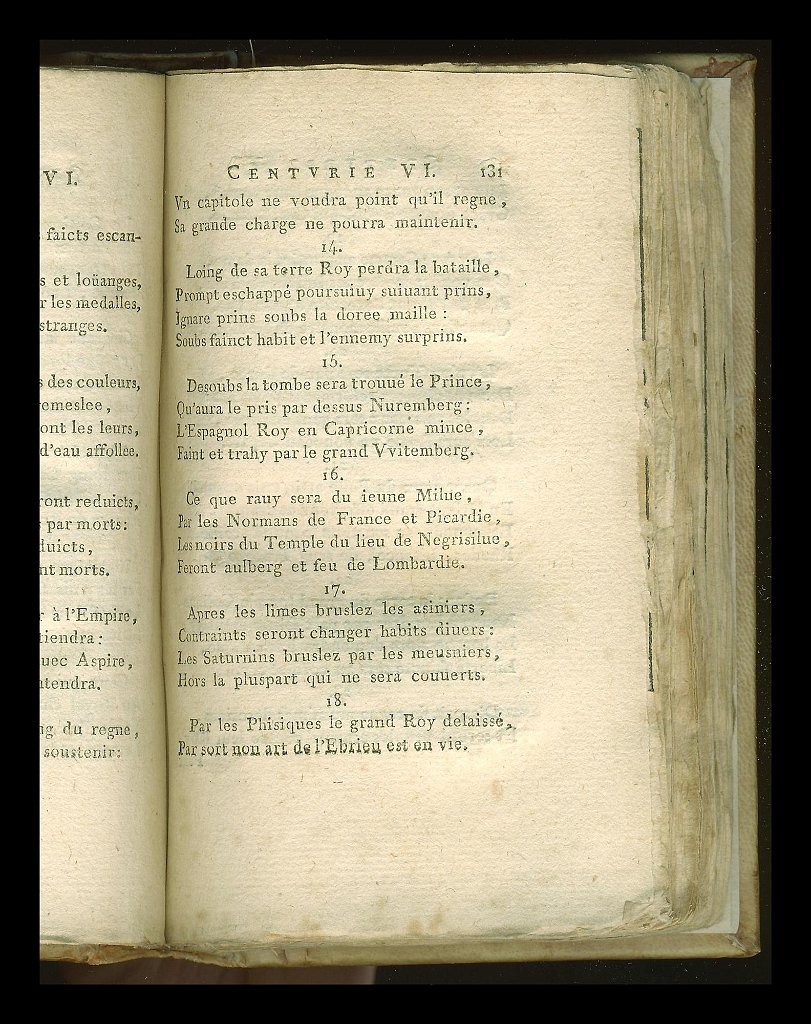 VI.
faicts escan-
s et loüanges,
r les medalles,
stranges.
s des couleurs,
emeslee,
ont les leurs,
d'eau affollee.
ront reduicts,
par morts:
duicts,
nt morts.
r à l'Empire,
tiendra:
uec Aspire,
ntendra.
ng du regne,
soustenir:
CENTVRIE VI. 131
Vn capitole ne voudra point qu'il regne,
Sa grande charge ne pourra maintenir.
14.
Loing de sa terre Roy perdra la bataille,
Prompt eschappé poursuiuy suiuant prins,
Ignare prins soubs la doree maille :
Soubs fainct habit et l'ennemy surprins.
15.
Desoubs la tombe sera trouué le Prince,
Qu'aura le pris par dessus Nuremberg:
L'Espagnol Roy en Capricorne mince,
Faint et trahy par le grand Vvitemberg.
16.
Ce que rauy sera du ieune Milue,
Par les Normans de France et Picardie,
Les noirs du Temple du lieu de Negrisilue,
Feront aulberg et feu de Lombardie.
17.
Apres les limes bruslez les asiniers,
Contraints seront changer habits diuers:
Les Saturnins bruslez par les meusniers,
Hors la pluspart qui ne sera couuerts.
18.
Par les Phisiques le grand Roy delaissé,
Par sort non art de l'Ebrieu est en vie.